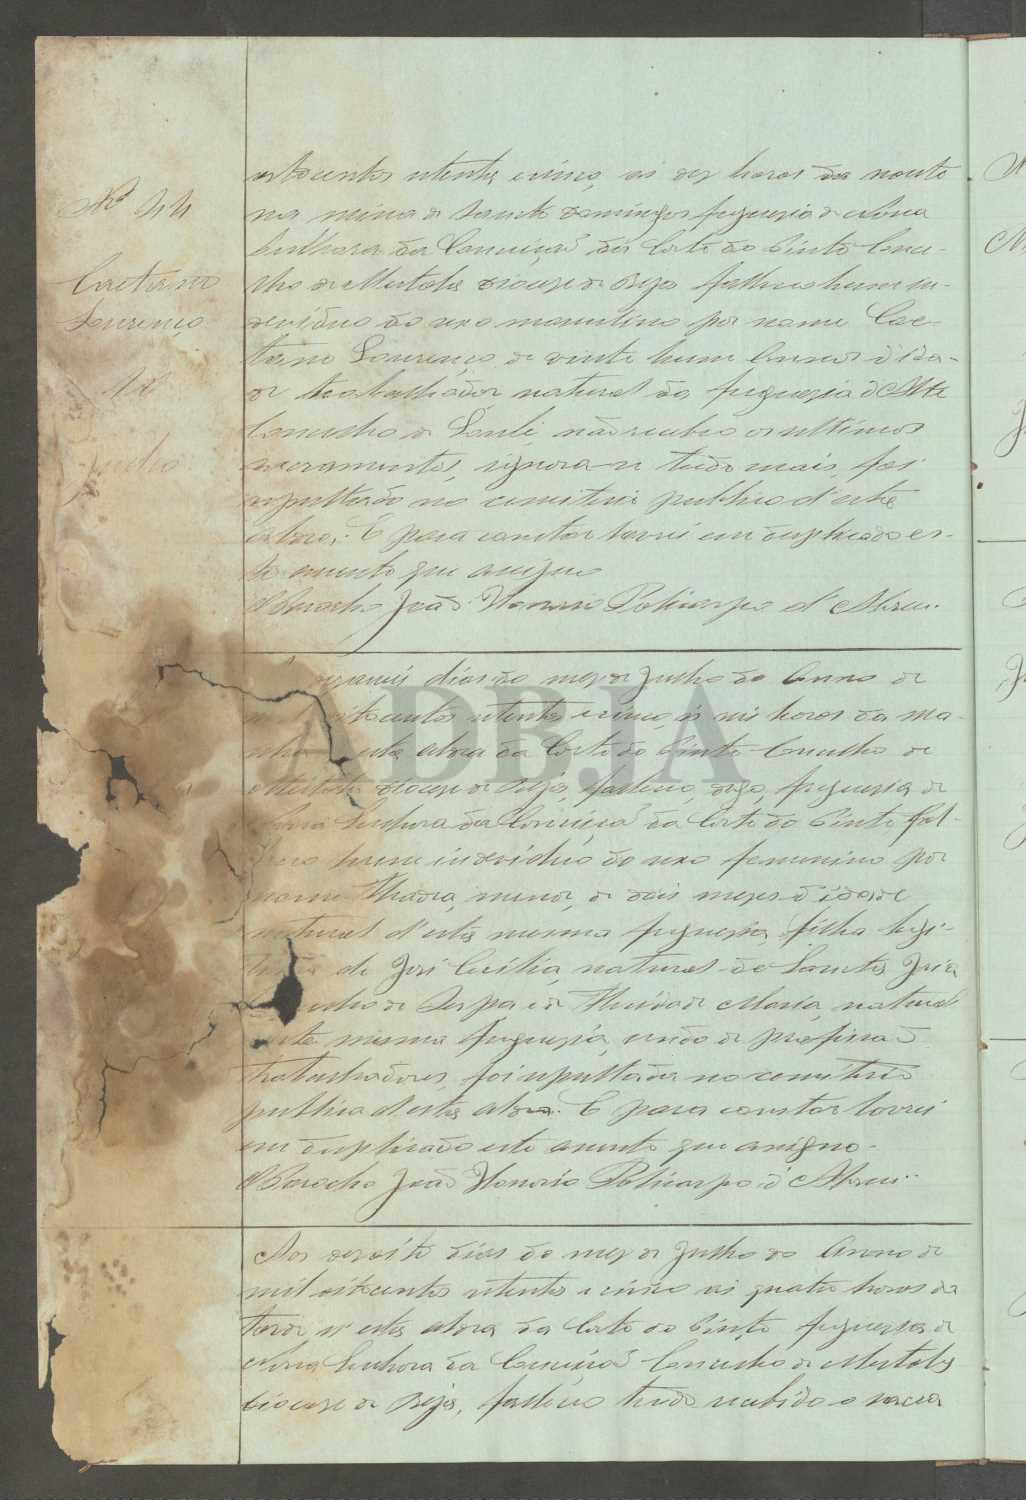 Nº 44
Caetano
Lourenço
16
Julho
oitocentos oitenta e cinco, ás dez horas da noute
na mina de Santo Domingos freguesia de Nossa
Senhora da Conceição da Corte do Pinto Conce-
lho de Mertola diocese de Beja falleceu hum in-
deviduo do sexo masculino por nome Cae-
tano Lourenço de vinte hum annos d'ida-
de trabalhador natural da freguesia d'Alte
Concelho de Loulé não recebeo os ultimos
sacramentos, ignora-se tudo mais, foi
sepultado no cemiterio publico d'esta
aldea. E para constar lavrei em duplicado es-
te assento que assigno
O Parocho João Honorio Policarpo d'Abreu.
dezaseis dias do mez de Julho do Anno de
mil oitocentos oitenta e cinco, ás seis horas da ma-
nhã n'esta aldea da Corte do Pinto Concelho de
Mertola diocese de Beja, falleceo, digo, freguesia de
Nossa Senhora da Conceição da Corte do Pinto fal-
leceo hum individuo do sexo femenino por
nome Thadea, menor, de dois mezes d'idade
natural d'esta mesma freguesia, filha legi-
tima de José Cecilia, natural de Santa Iria
Concelho de Serpa e de Maria, natural
d'esta mesma freguesia, sendo de profissão
trabalhadores, foi sepultada no cemiterio
publico d'esta aldea. E para constar lavrei
em duplicado este assento que assigno.
O Parocho João Honorio Policarpo d'Abreu.
Aos dezoito dias do mez de Julho do Anno de
mil oitocentos oitenta e cinco ás quatro horas da
tarde n'esta aldea da Corte do Pinto freguesia de
Nossa Senhora da Conceição Concelho de Mertola
diocese de Beja, falleceo tendo recebido o sacra
ADBJA